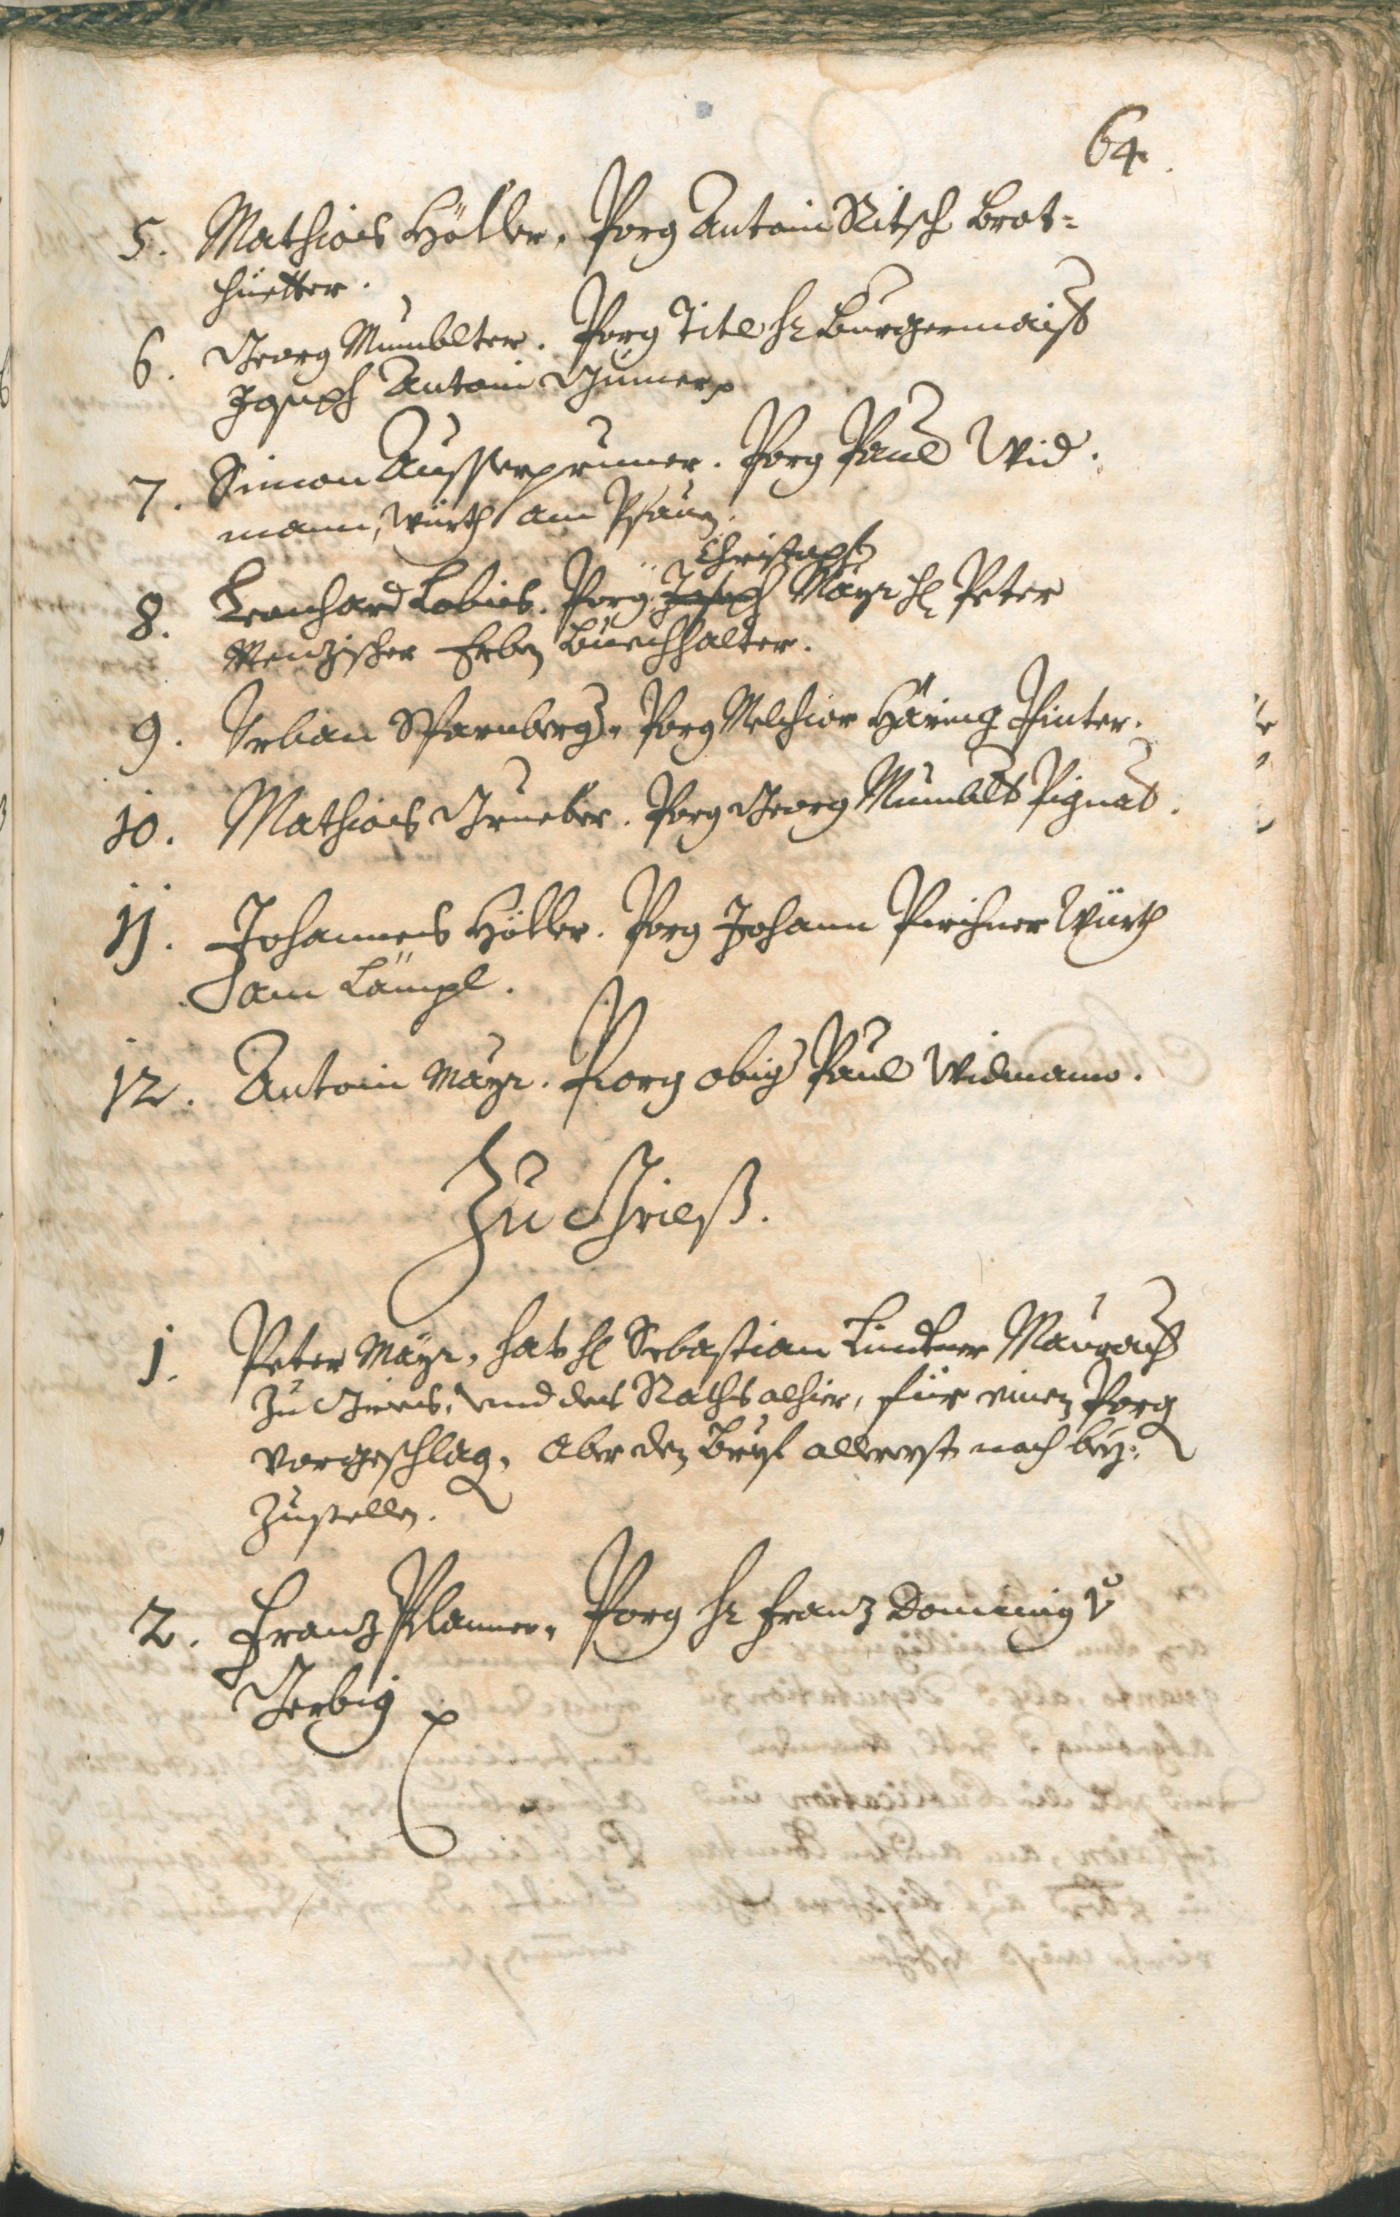 64.
5. Mathias Höller. Porg Antoni Nitsch Brot-
hüetter.
6. Georg Mumblter. Porg Titl hr Burgermaist
Joseph Antoni Gumer
7. Simon Ausserprunner. Porg Paul Wid-
mann, Würth am Pfauen.
Christoph
8. Leonhard Lobis. Porg Joseph Mayr hl Peter
Menzischer Erben Buechhalter.
9. Urban Spornberg. Porg Melchior Häring Pinter.
10. Mathias Grueber. Porg Georg Mumblt Pignat.
11. Johannes Höller. Porg Johann Pirchner Würth
am Lämpl.
12. Antoni Mayr. Porg obig Paul Widmann.
Zu Grieß.
1. Peter Mayr, hat hl Sebastian Lindner
zu Gries, und des Raths alhier, für einen Porg
vorgeschlagen, aber den allererst noch bey-
zustellen.
2. Franz Planner. Porg hr Franz Dominig v
Gerbig